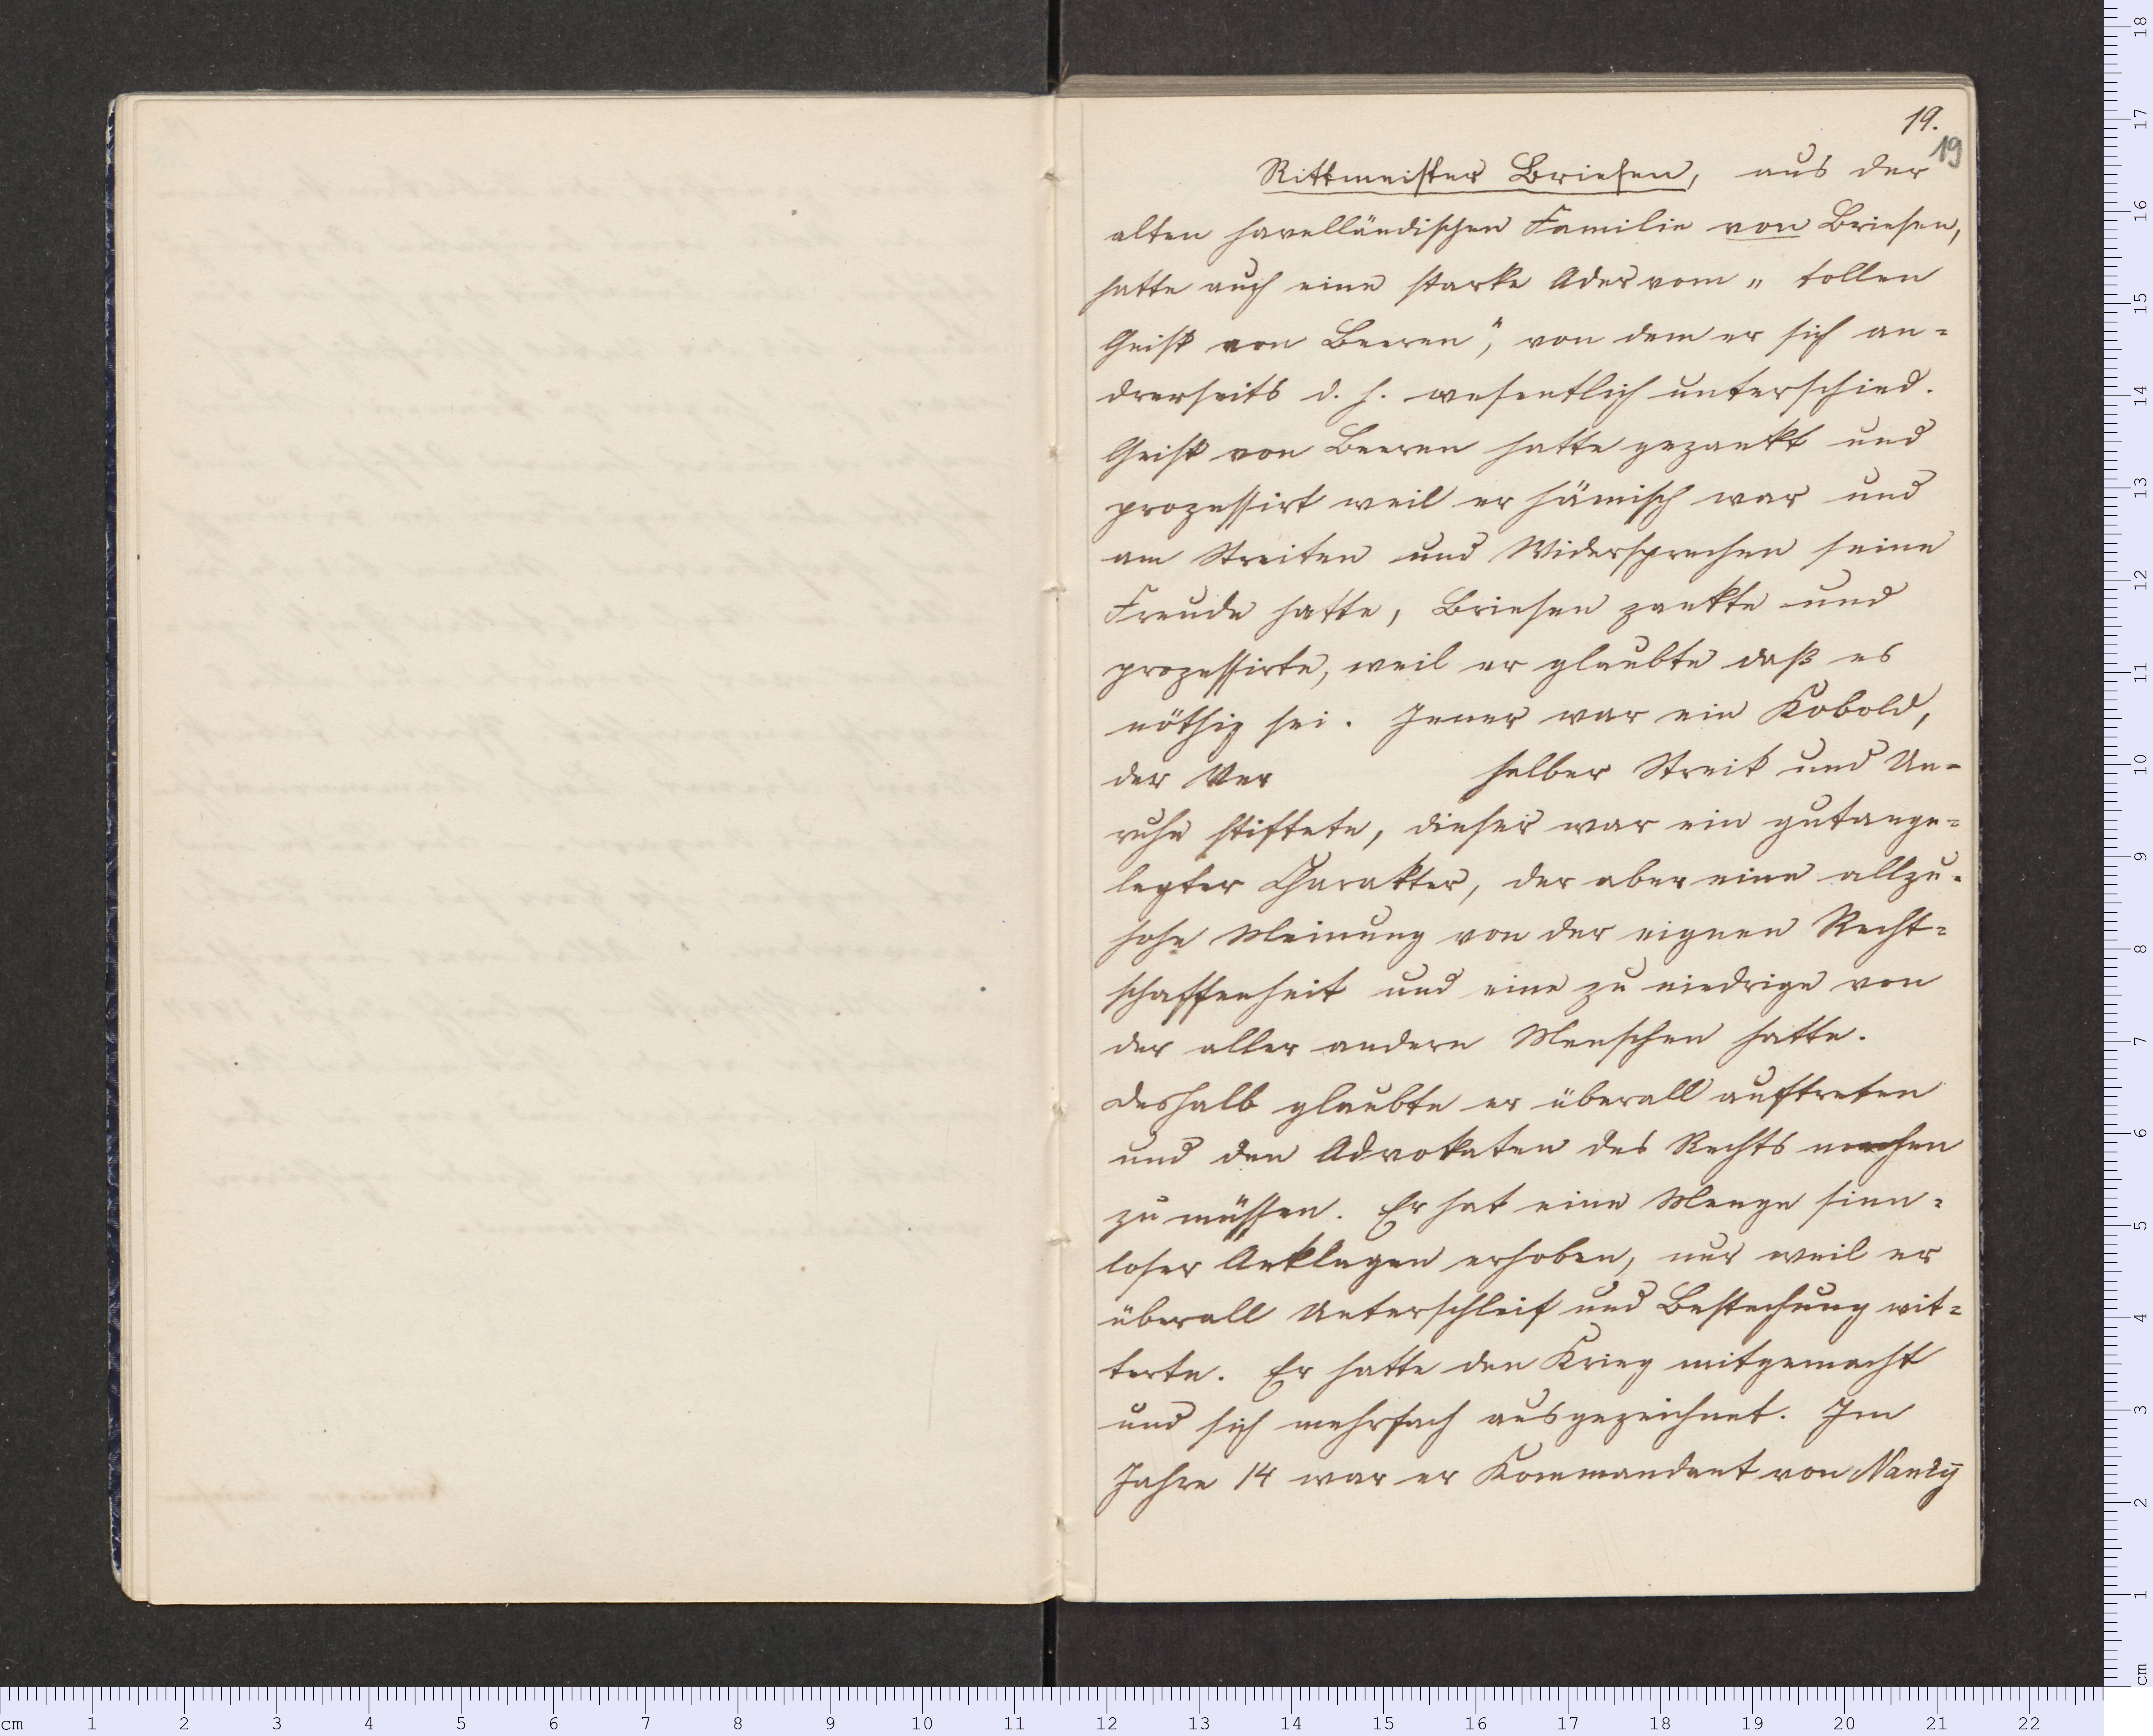 19.
19
Rittmeister Briesen, aus der
alten havelländischen Familie von Briesen,
hatte auch eine starke Ader vom „tollen
Geist von Beeren", von dem er sich an=
drerseits d. h. wesentlich unterschied.
Geist von Beeren hatte gezankt und
prozessirt weil er hämisch war und
am Streiten und Widersprechen seine
Freude hatte, Briesen zankte und
prozessirte, weil er glaubte daß es
nöthig sei. Jener war ein Kobold,
der Ver halber Streit und Un=
ruhe stiftete, dieser war ein gutange=
legter Charakter, der aber eine allzu=
hohe Meinung von der eignen Recht=
schaffenheit und eine zu niedrige von
der aller andern Menschen hatte.
Deshalb glaubte er überall auftreten
und den Advokaten des Rechts machen
zu müssen. Er hat eine Menge sinn=
loser Anklagen erhoben, nur weil er
überall Unterschleif und Bestechung wit=
terte. Er hatte den Krieg mitgemacht
und sich mehrfach ausgezeichnet. Im
Jahre 14 war er Kommandant von Nancy